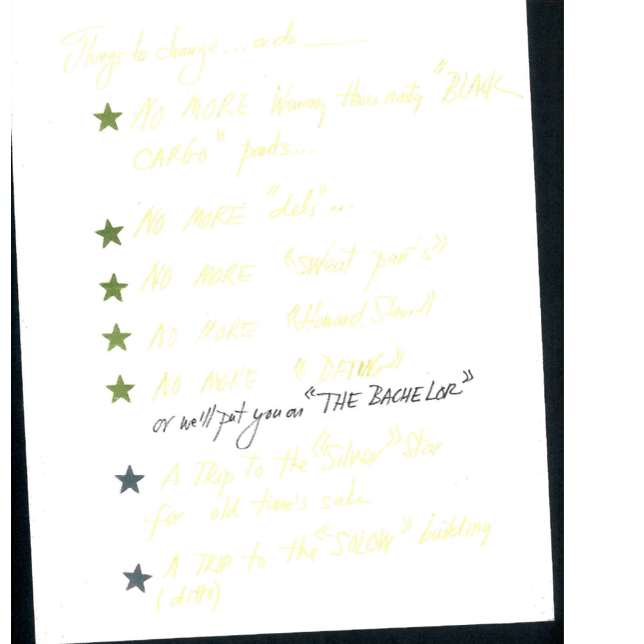 Things to change... or do
NO MORE Wearing those nasty "BLACK
CARGO" pants...
NO MORE "deli"...
NO MORE "sweat pants"
NO MORE "Howard Stern"
NO MORE
or we'll put you on "THE BACHELOR"
A TRIP to the "Silver" Star
for old time's sake
A TRIP to the "SOLOW" building
(ditto)